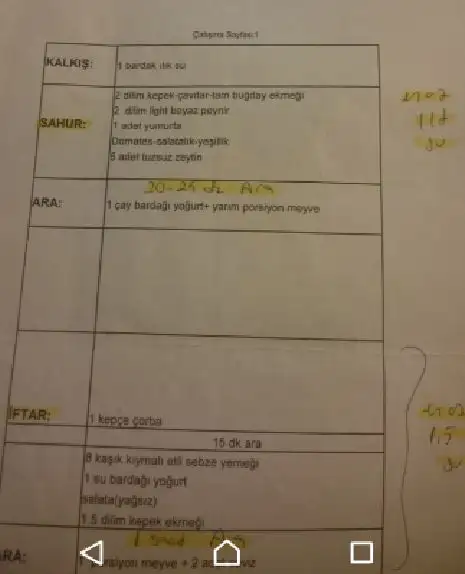 Çalışma Sayfası 1
KALKIŞ:
1 bardak ılık su
SAHUR:
2 dilim kepek-çavdar-tam buğday ekmeği
2 dilim light beyaz peynir
1 adet yumurta
Domates-salatalık-yeşillik
5 adet tuzsuz zeytin
en az
1 lt
su
20-25 dk Ara
ARA:
1 çay bardağı yoğurt+ yarım porsiyon meyve
İFTAR:
1 kepçe çorba
en az
1.5
su
15 dk ara
8 kaşık kıymalı etli sebze yemeği
1 su bardağı yoğurt
salata(yağsız)
1.5 dilim kepek ekmeği
1 saat
ARA:
1 porsiyon meyve + 2